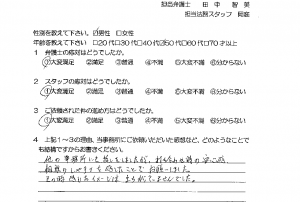 担当弁護士 田中 智美
担当法務スタッフ
性別を教えて下さい。☑男性 □女性
年齢を教えて下さい □20代□30代□40代☑50代□60代□70才以上
1 弁護士の応対はどうでしたか。
①大変満足 ②満足 ③普通 ④不満 ⑤大変不満 ⑥分からない
2 スタッフの応対はどうでしたか。
①大変満足 ②満足 ③普通 ④不満 ⑤大変不満 ⑥分からない
3 ご依頼された件の進め方はどうでしたか。
①大変満足 ②満足 ③普通 ④不満 ⑤大変不満 ⑥分からない
4 上記1~3の理由、当事務所にご依頼いただいた感想など、どのようなことで
も結構ですからお書きください。
他の事務所にも電話をしましたが、
相談のしやすさを感じたことでお願いしました。
その時感じたイメージは